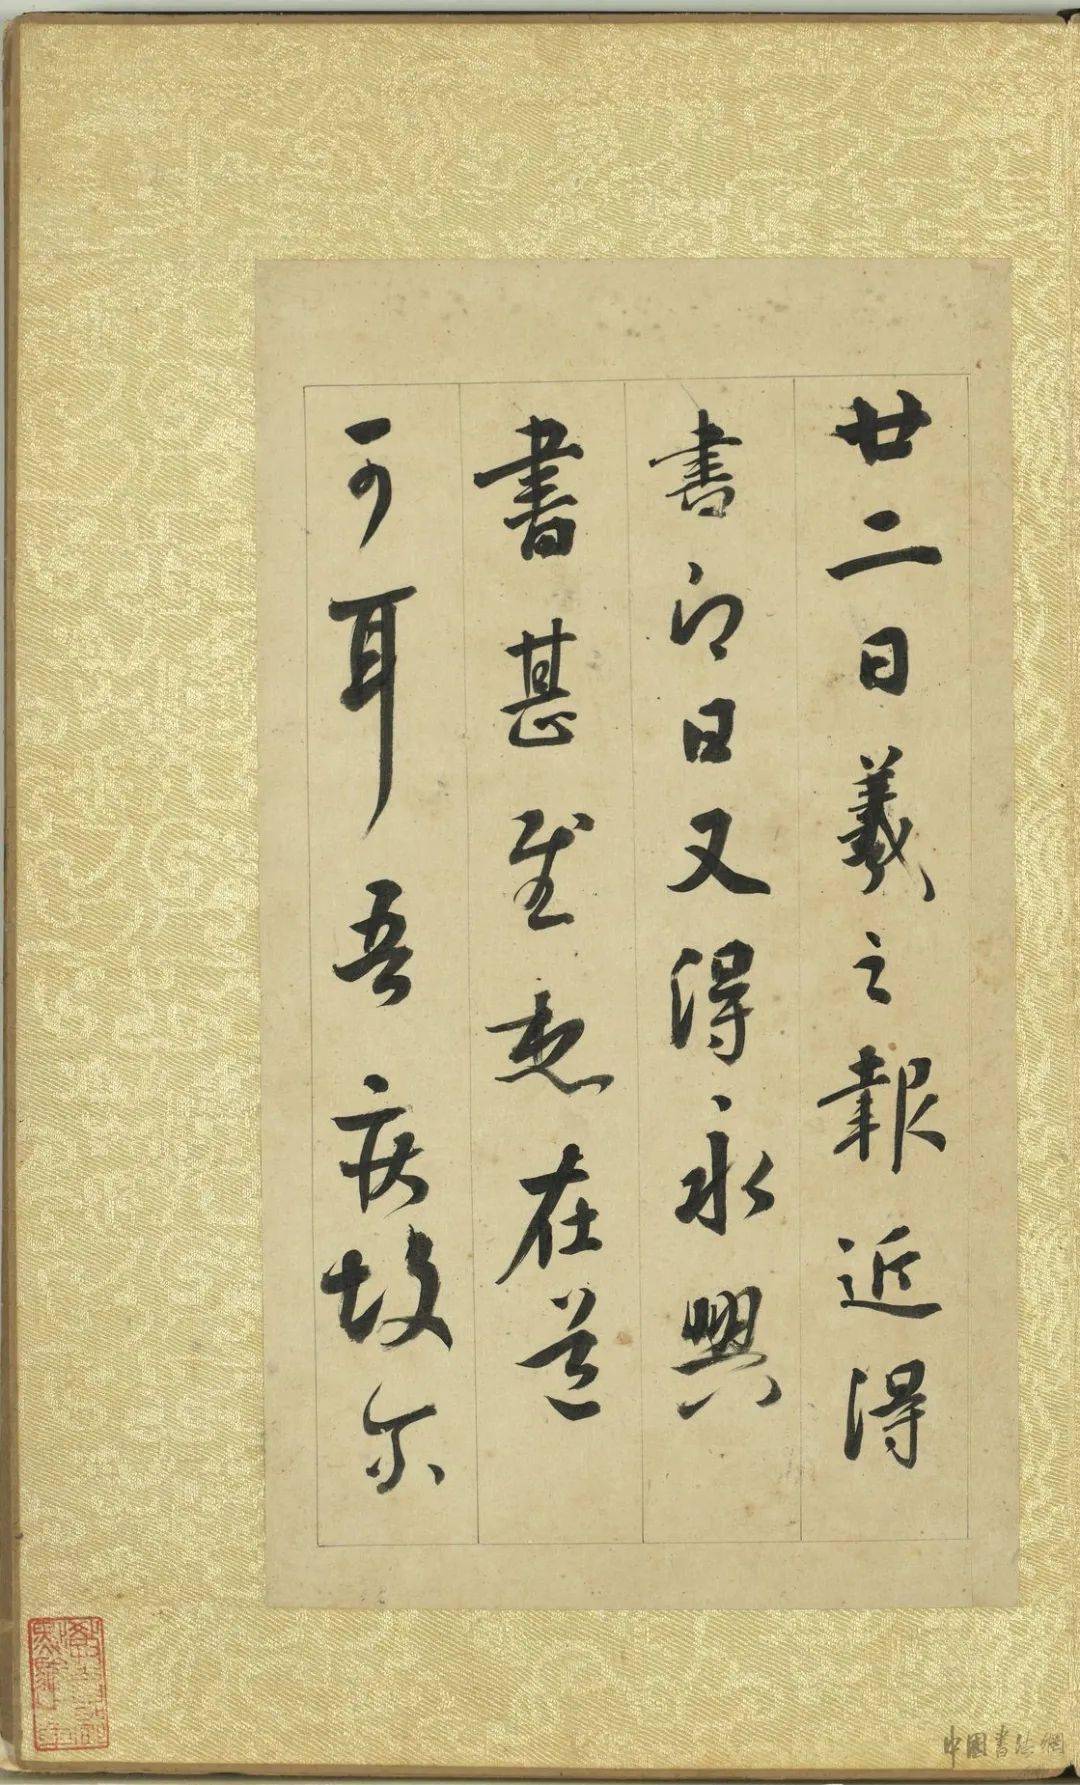 廿二日羲之報近得
書即日又得永興
書甚慰想在道
可耳吾疾故尔
中國書法網